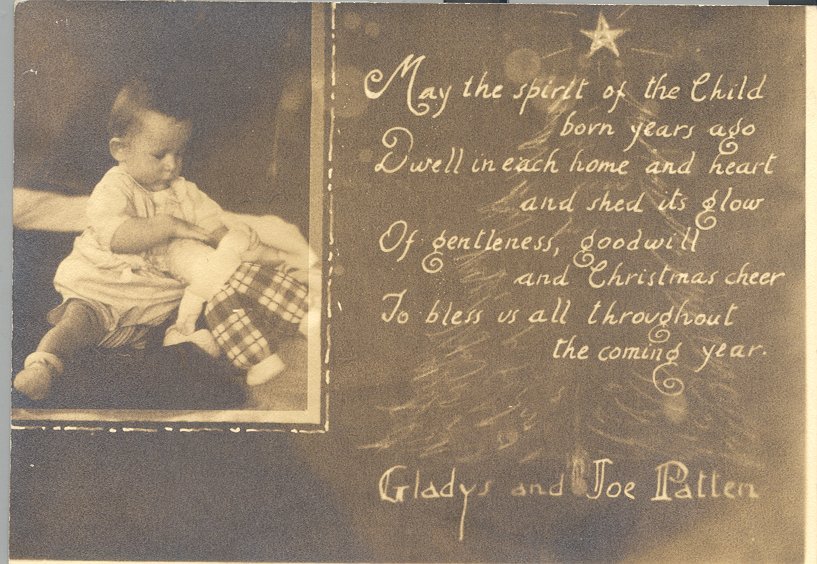 May the spirit of the Child
born years ago
Dwell in each home and heart
and shed its glow
Of gentleness, goodwill
and Christmas cheer
To bless us all throughout
the coming year.
Gladys and Joe Patten